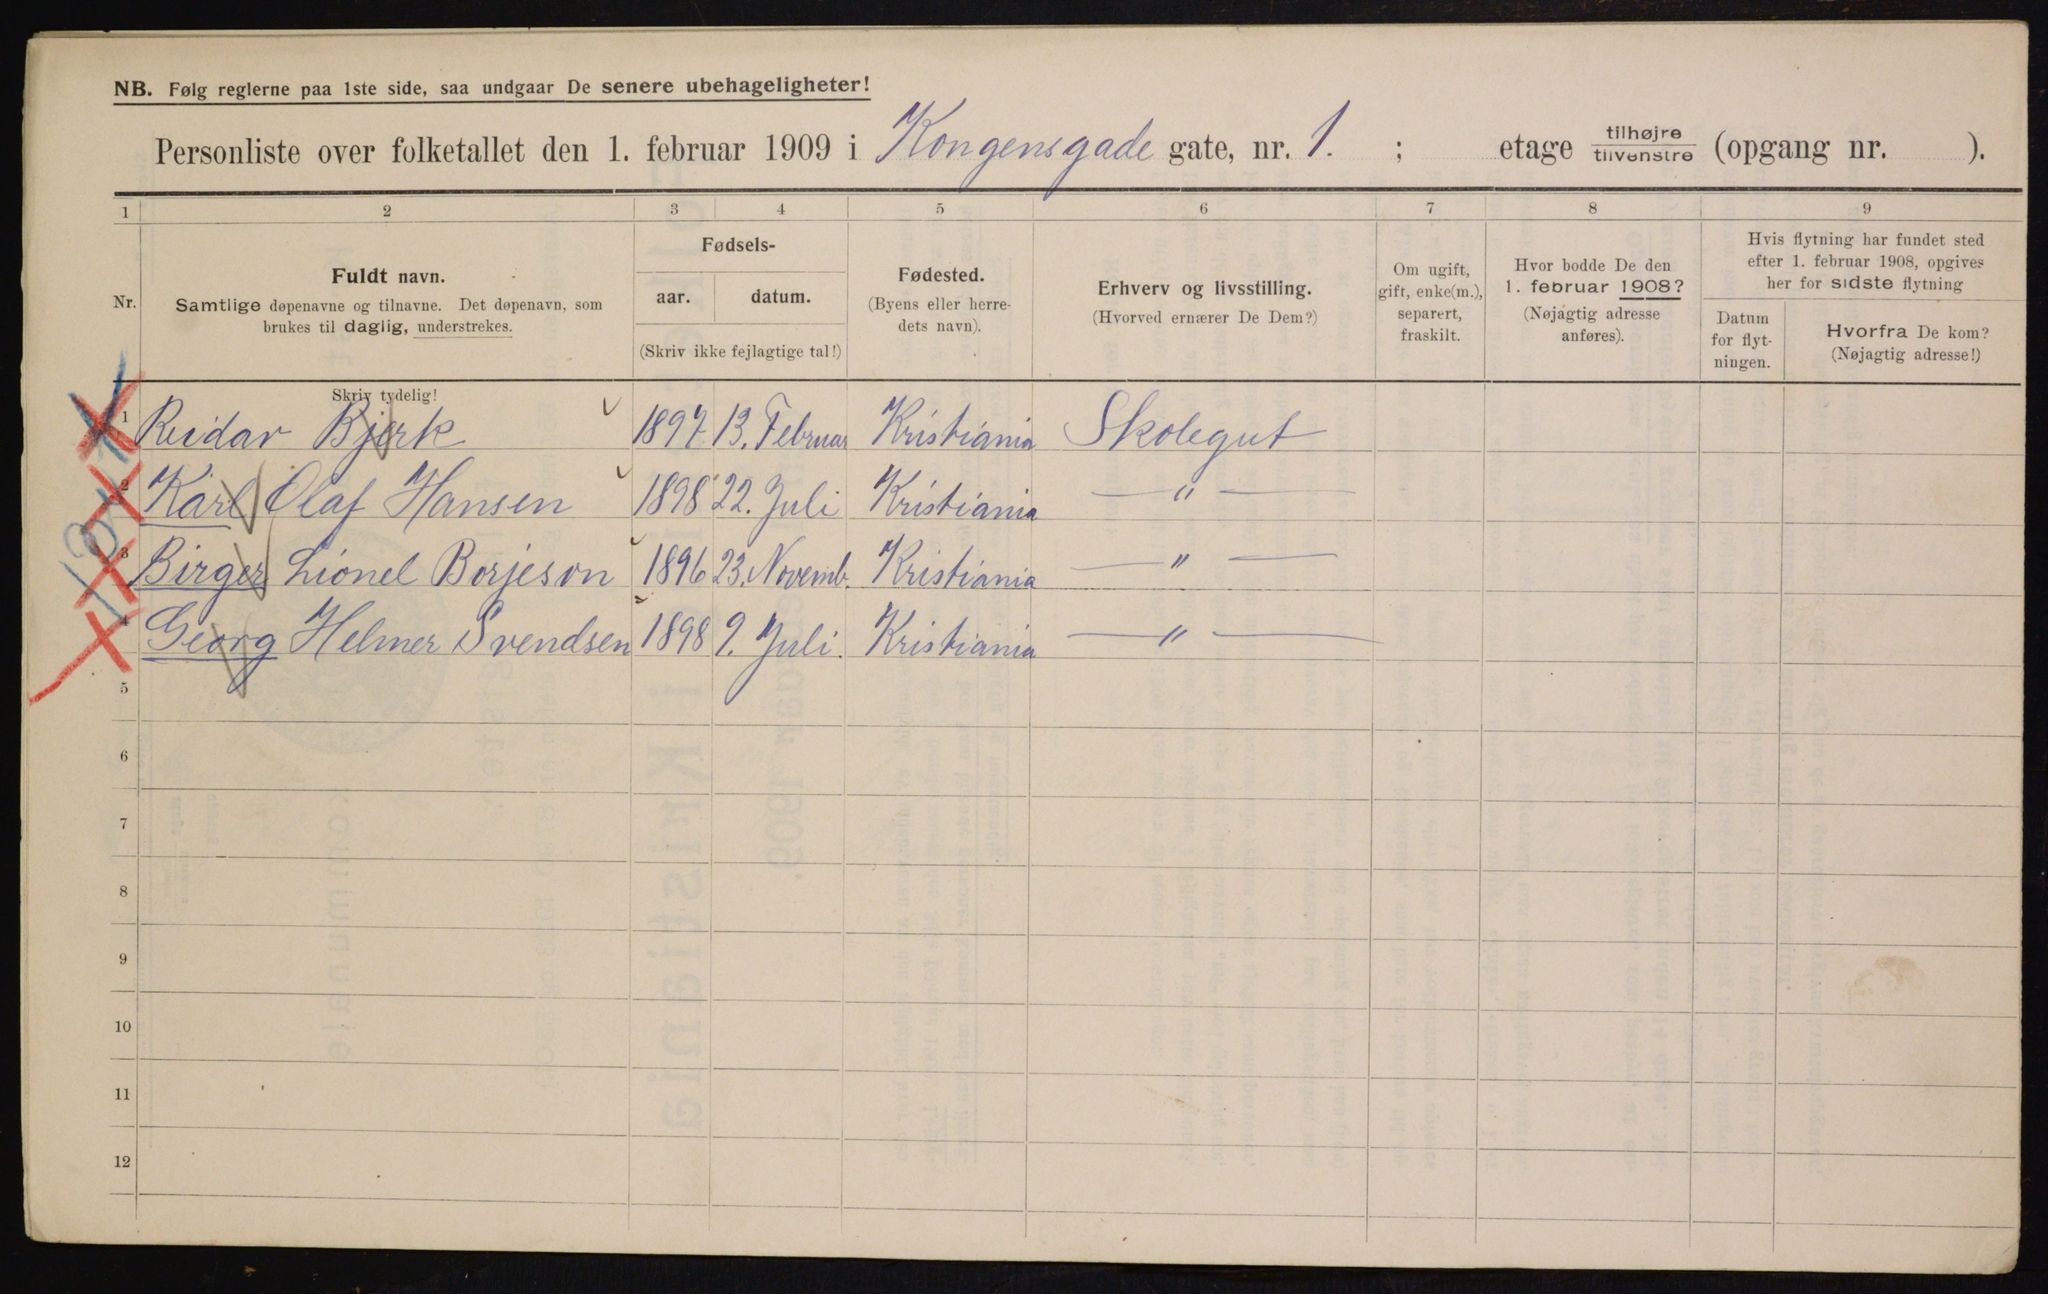 NB. Følg reglerne paa 1ste side, saa undgaar De senere ubehageligheter!
Personliste over folketallet den 1. februar 1909 i Kongensgade gate, nr. 1. ; etage tilhøjre / tilvenstre (opgang nr. ).
1 2 3 4 5 6 7 8 9
Nr.
Fuldt navn.
Samtlige døpenavne og tilnavne. Det døpenavn, som
brukes til daglig, understrekes.
Fødsels-
aar. datum.
(Skriv ikke fejlagtige tal!)
Fødested.
(Byens eller herre-
dets navn).
Erhverv og livsstilling.
(Hvorved ernærer De Dem?)
Om ugift,
gift, enke(m.),
separert,
fraskilt.
Hvor bodde De den
1. februar 1908?
(Nøjagtig adresse
anføres).
Hvis flytning har fundet sted
efter 1. februar 1908, opgives
her for sidste flytning
Datum
for flyt-
ningen.
Hvorfra De kom?
(Nøjagtig adresse!)
Skriv tydelig!
1 Reidar Bjerk 1897 13. Februar Kristiania Skolegut
2 Karl Olaf Hansen 1898 22. Juli Kristiania — " —
3 Birger Lionel Borjeson 1896 23. Novemb. Kristiania — " —
4 Georg Helmer Svendsen 1898 9. Juli. Kristiania — " —
5
6
7
8
9
10
11
12